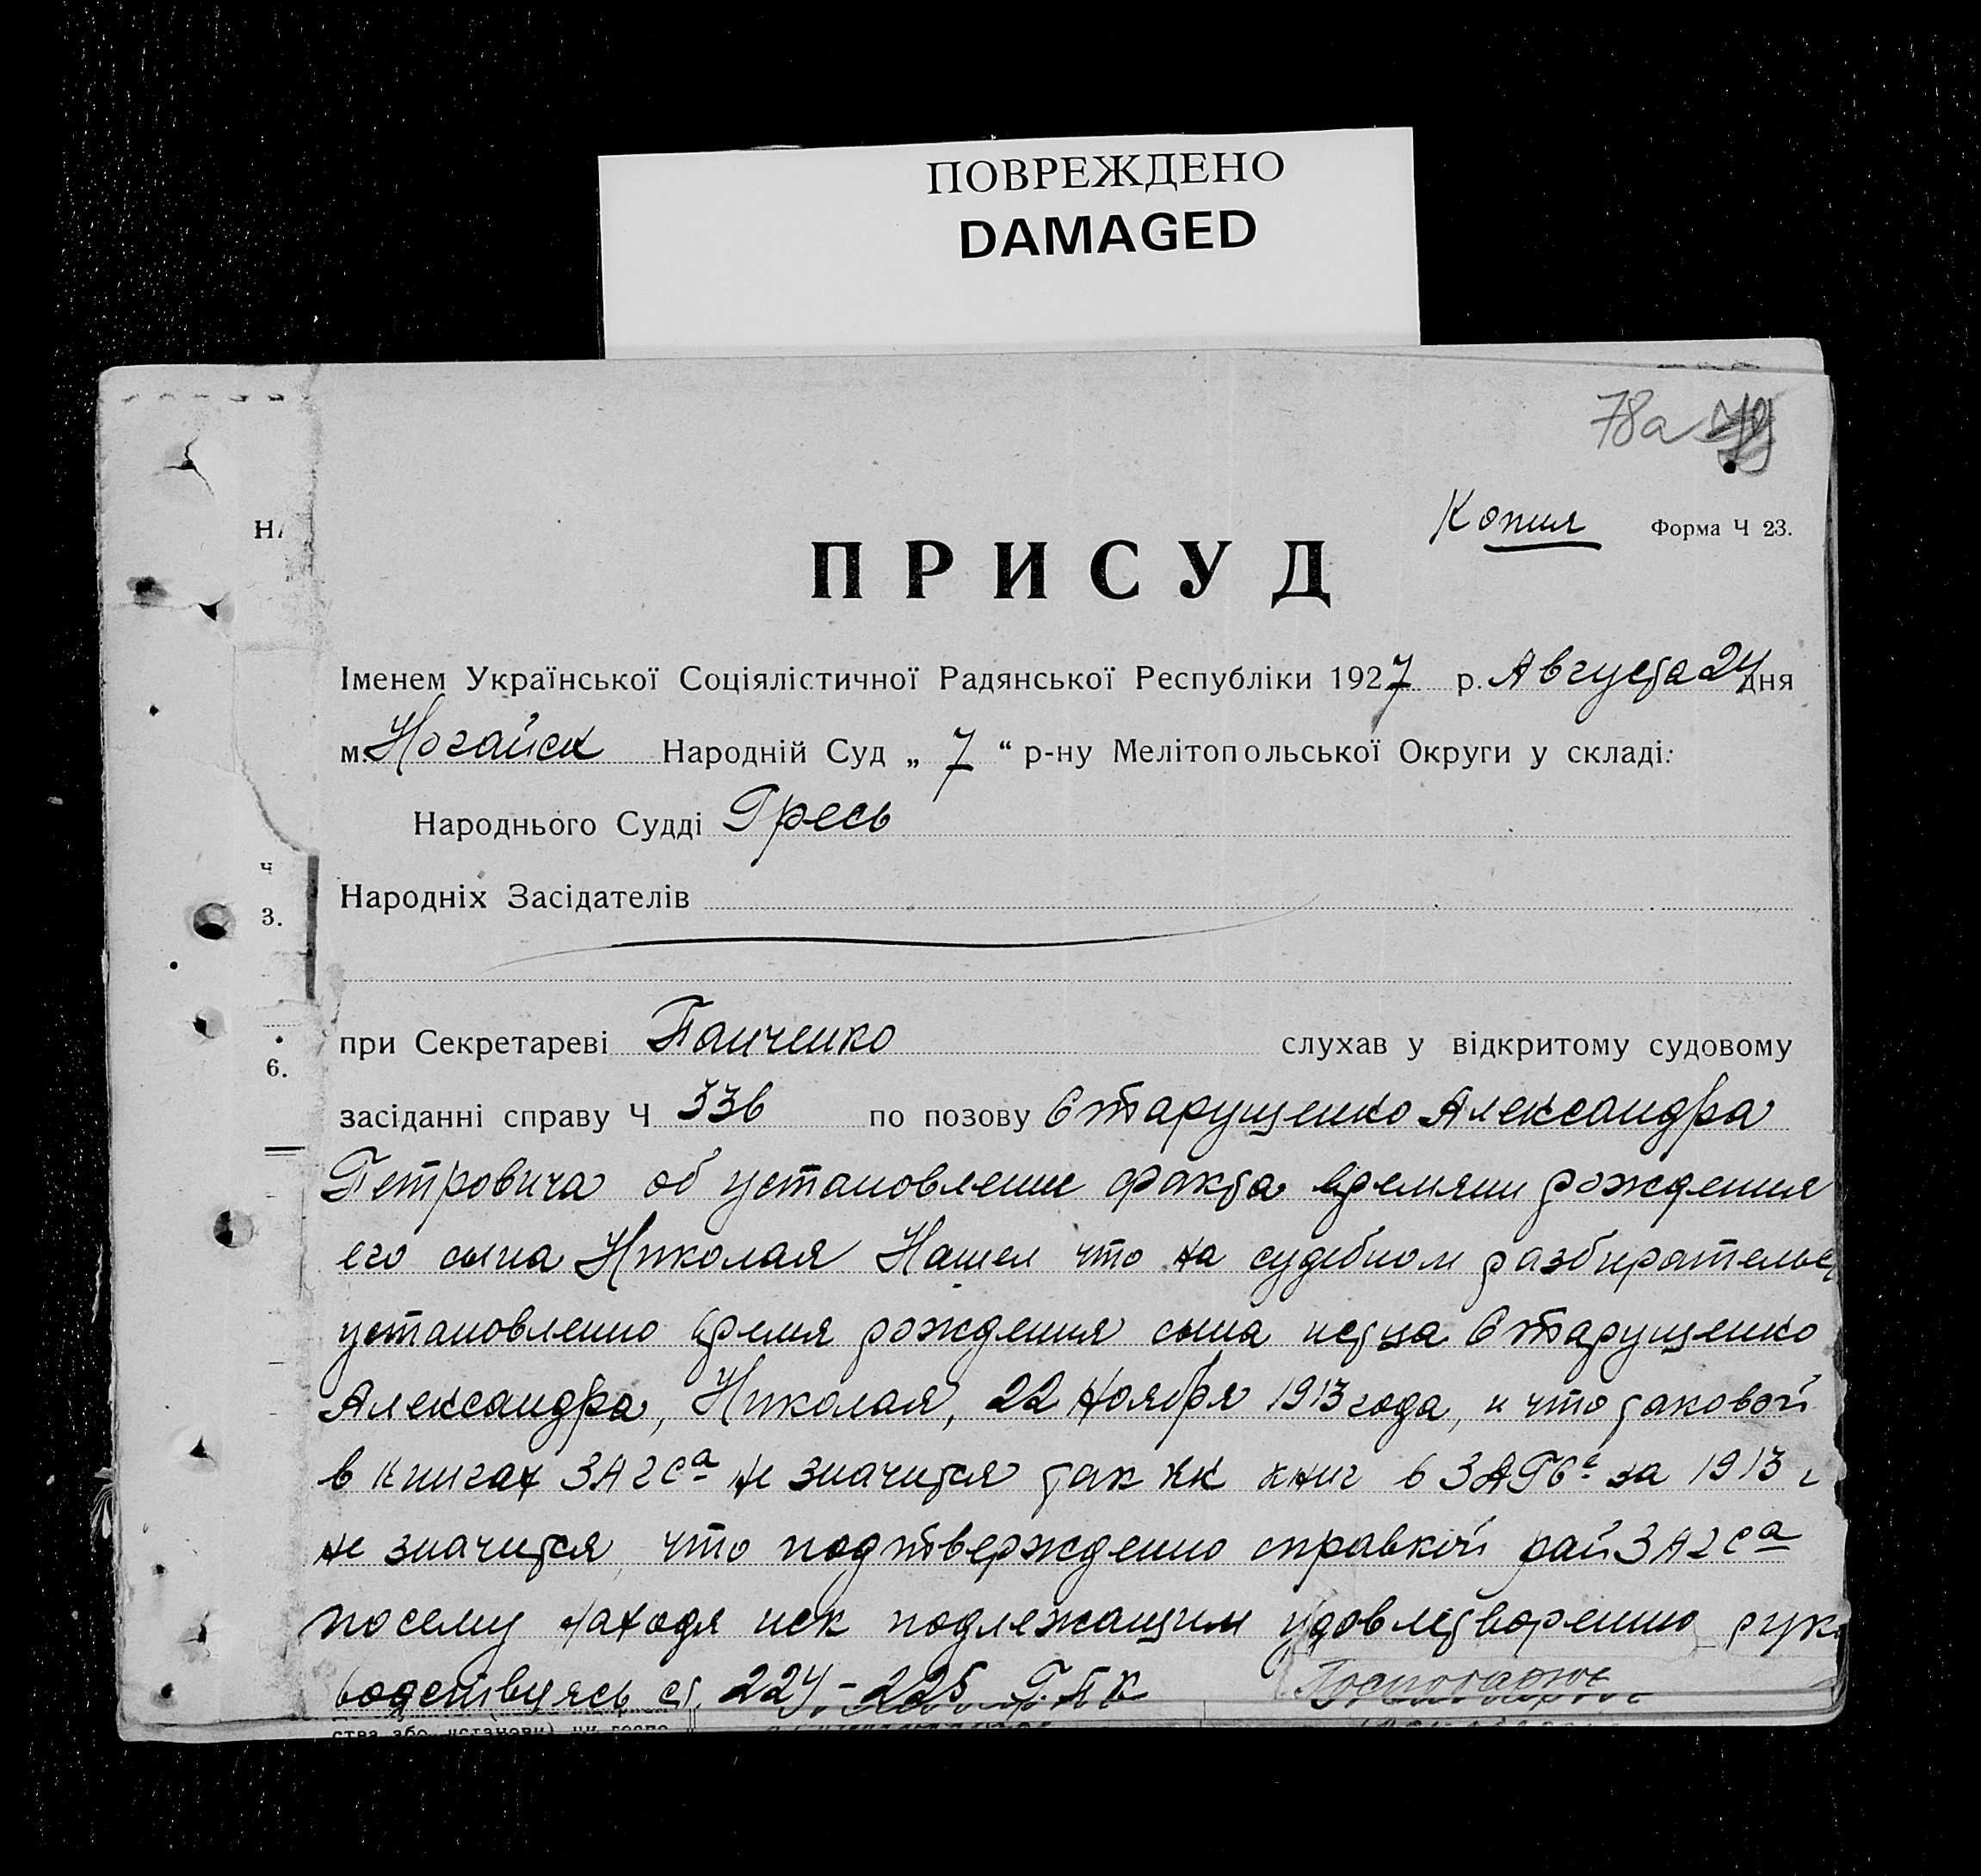 ПОВРЕЖДЕНО
DAMAGED
78а
Копия Форма Ч 23.
ПРИСУД
Іменем Української Соціялістичної Радянської Республіки 1927 р. Августа 24 дня
м. Ногайск Народній Суд „ 7 “ р-ну Мелітопольської Округи у складі:
Народнього Судді Гресь
Народніх Засідателів
при Секретареві Панченко слухав у відкритому судовому
засіданні справу Ч 336 по позову Старущенко Александра
Петровича об установлении факта времяни рождения
его сына Николая Нашел что на судебном разбирательс
установленно время рождения сына истца Старущенко
Александра, Николая, 22 ноября 1913 года, и что таковой
в книгах ЗАГСа не значится так как книг в ЗАГСе за 1913 г
не значится, что подтвержденно справкой райЗАГСа
посему находя иск подлежащим удовлетворению руко
водствуясь ст. 224-225 Г.П.К
Н
ч
3.
6.
ства або установи) чи госпо